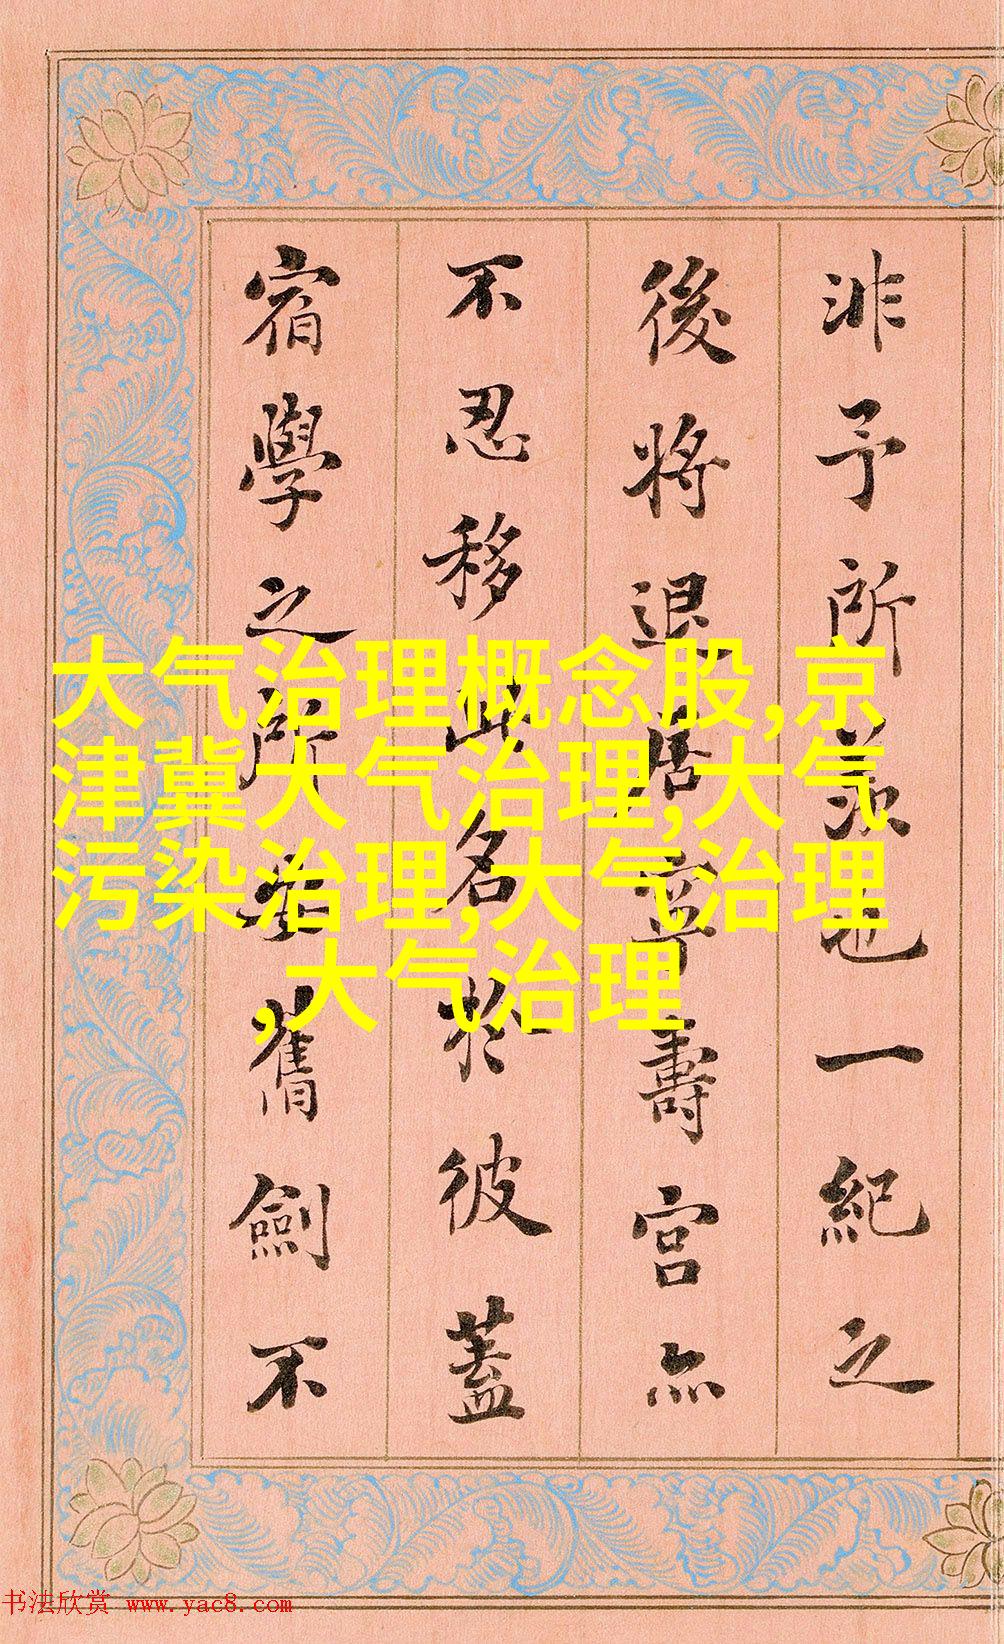 非予所羨也一紀之
後將退居寧壽宮亦
不忍移此名於彼蓋
宿學之所安舊劍不
大气治理概念股,京
津冀大气治理,大气
污染治理,大气治理
,大气治理
书法欣赏 www.yac8.com